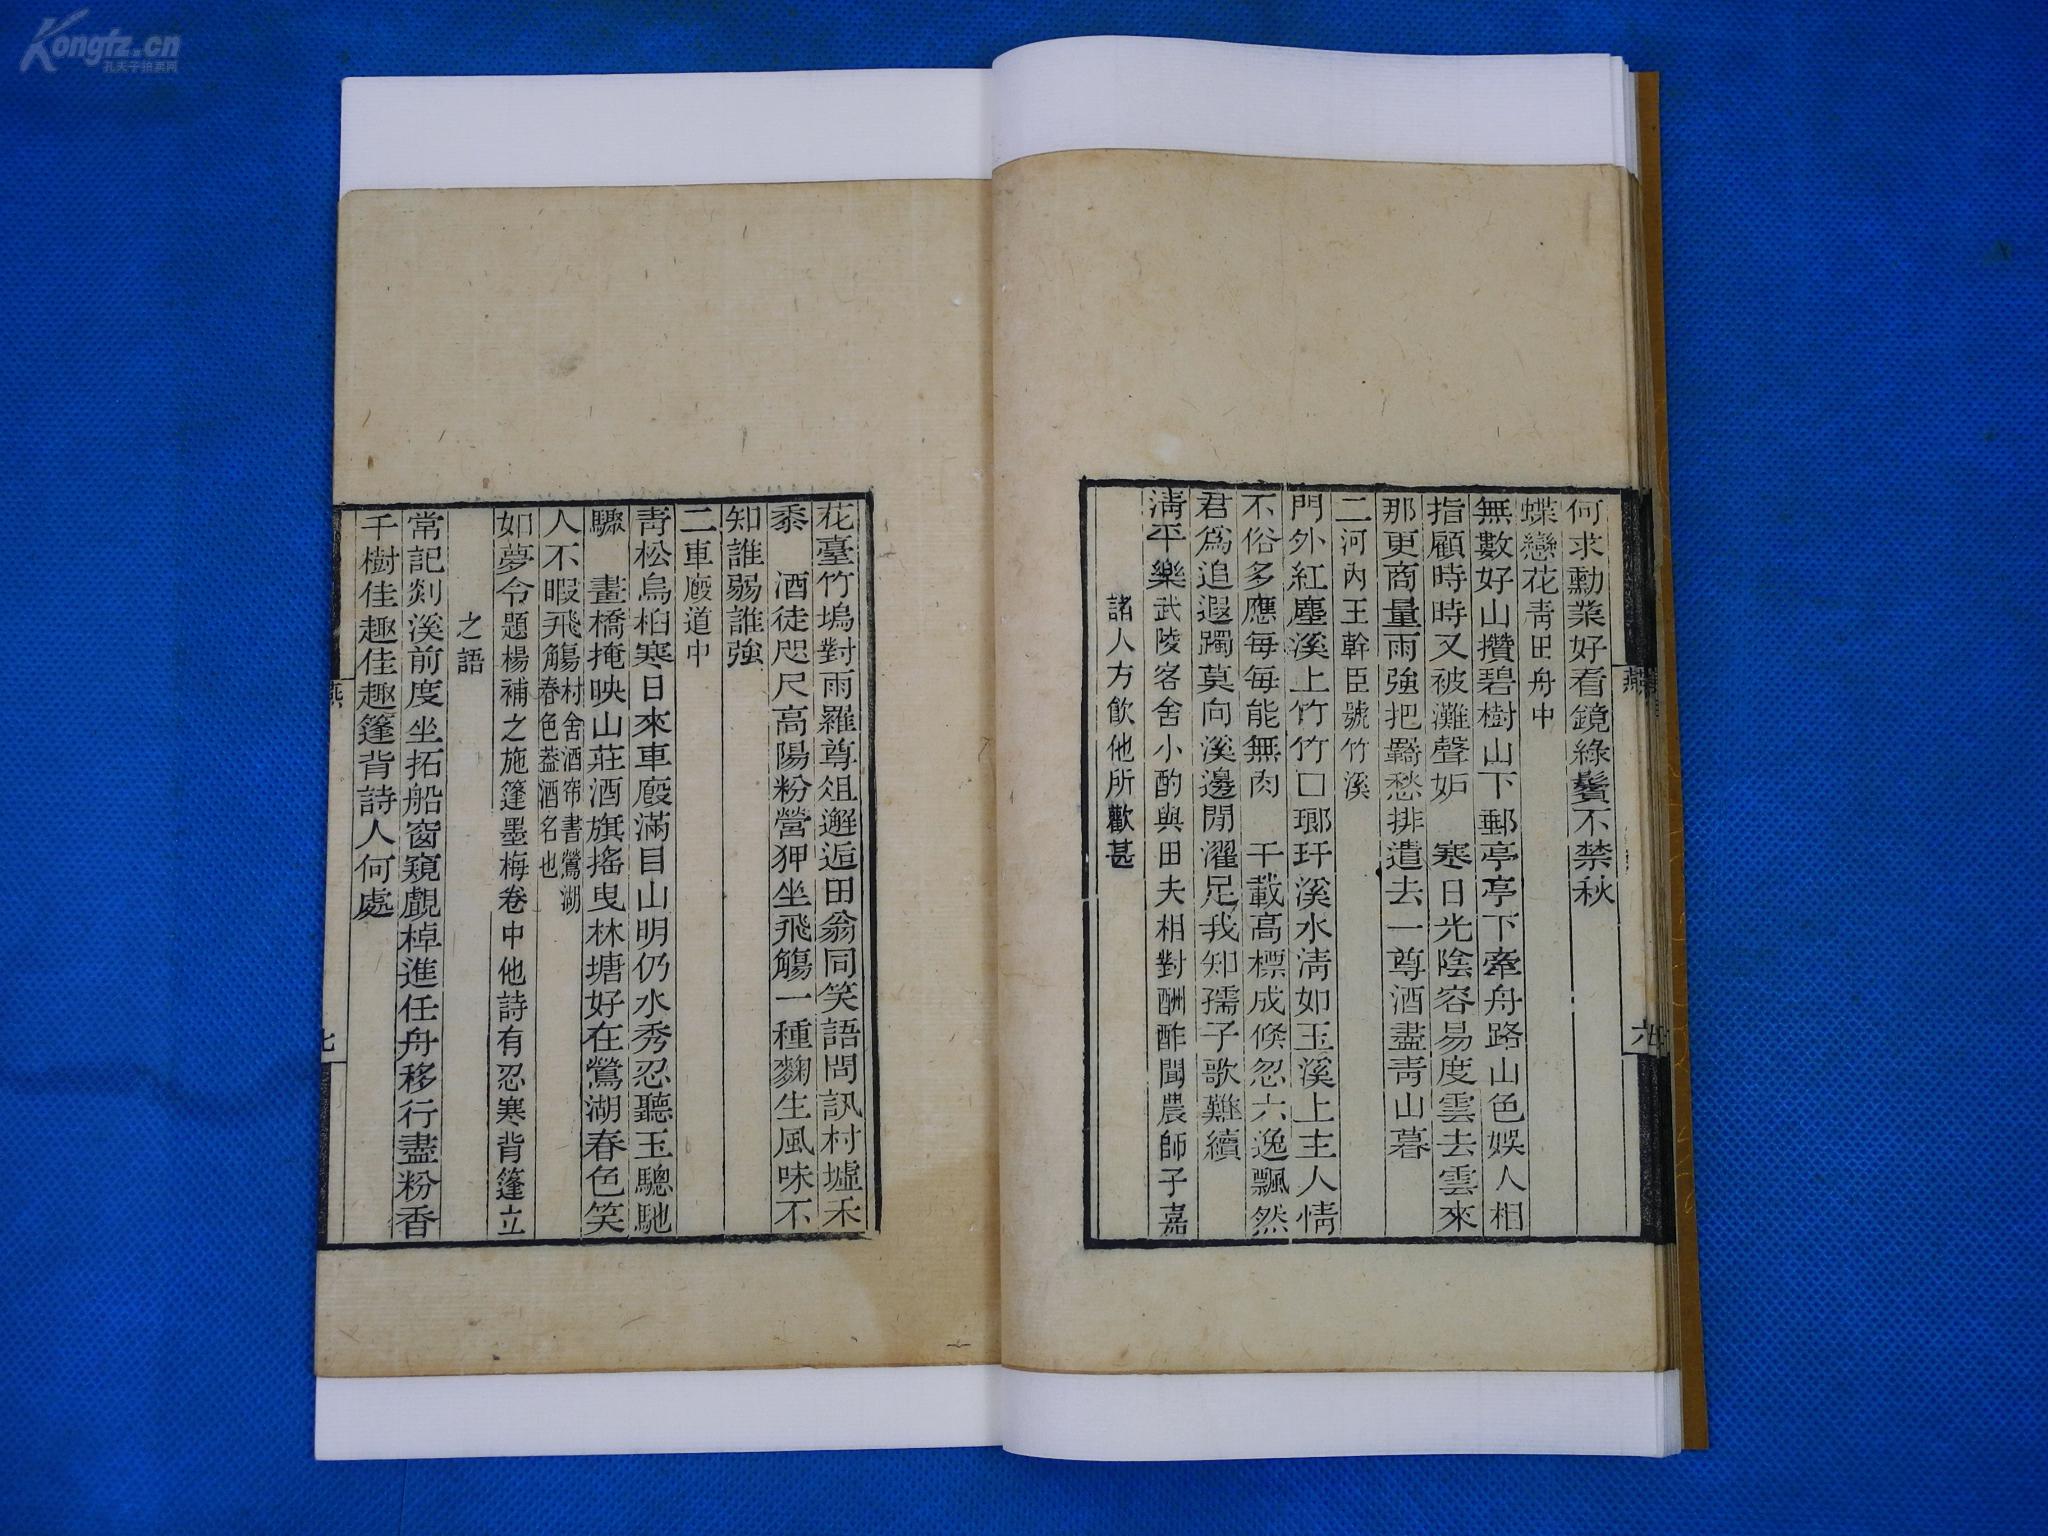 Kongfz.cn
孔夫子拍卖网
何求勳業好看鏡綠鬢不禁秋
蝶戀花青田舟中
無數好山攢碧樹山下郵亭亭下牽舟路山色娛人相
指顧時時又被灘聲妒　寒日光陰容易度雲去雲來
那更商量雨強把羇愁排遣去一尊酒盡青山暮
二河內王幹臣號竹溪
門外紅塵溪上竹竹口瑯玕溪水清如玉溪上主人情
不俗多應每每能無肉　千載高標成倏忽六逸飄然
君爲追遐躅莫向溪邊閒濯足我知孺子歌難續
清平樂武陵客舍小酌與田夫相對酬酢聞農師子嘉
諸人方飲他所歡甚
燕
六
花臺竹塢對雨羅尊俎邂逅田翁同笑語問訊村墟禾
黍　酒徒咫尺高陽粉營狎坐飛觴一種麴生風味不
知誰弱誰強
二車廄道中
靑松烏桕寒日來車廄滿目山明仍水秀忍聽玉驄馳
驟　畫橋掩映山莊酒旗搖曳林塘好在鶯湖春色笑
人不暇飛觴村舍酒帘書鶯湖
春色葢酒名也
如夢令題楊補之施篷墨梅卷中他詩有忍寒背篷立
之語
常記剡溪前度坐拓船窗窺覰棹進任舟移行盡粉香
千樹佳趣佳趣篷背詩人何處
燕
七